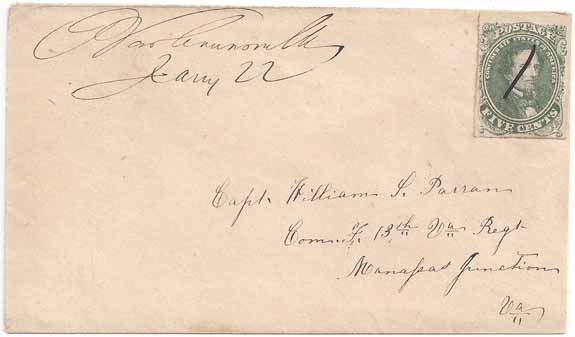 Jany 22
POSTAGE
CONFEDERATE STATES OF AMERICA
FIVE CENTS
Capt. William S. Parran
Com. F. 13th Va Regt
Manassas Junction
Va